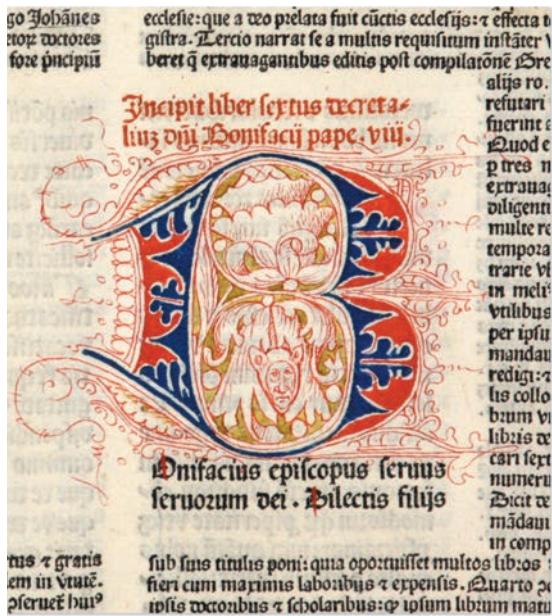 go Johānes
etoꝝ doctores
fore pͥncipiū
ecclesie: que a deo prelata fuit cūctis ecclesijs: ⁊ effecta
gistra. Tercio narrat se a multis requisitum instāter
beret q̄ extrauagantibus editis post compilatōnē Gre
Incipit liber sextus decreta⸗
liuꝫ dn̄i Bonifacij pape. viij.
B
Onifacius episcopus seruus
seruorum dei. Dilectis filijs
alijs ro.
refutari
fuerint
Quod e
p tres n
extrauag
diligenti
multe re
tempora
trarie vl
in meli⁹
vtilibus
per ipsu
mandau
redigi: ⁊
lis collo
brum vi
libris de
cari sext
numeru
Dicit de
mādaui
in comp
tus ⁊ gratis
em in v̄tutē.
oseruet hui⁹
sub suis titulis poni: quia oportuisset multos libros
fieri cum maximis laboribus ⁊ expensis. Quarto
ipsis doctoribus ⁊ scholaribus: ꝙ ipsum librum man